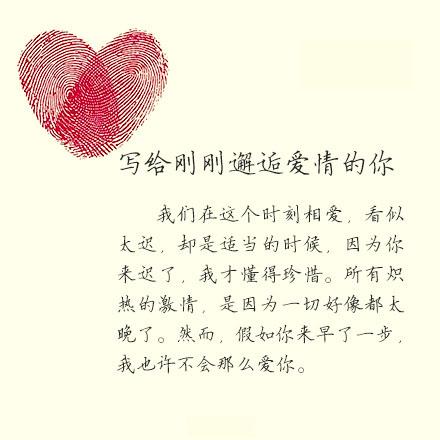 写给刚刚邂逅爱情的你
我们在这个时刻相爱，看似
太迟，却是适当的时候，因为你
来迟了，我才懂得珍惜。所有炽
热的激情，是因为一切好像都太
晚了。然而，假如你来早了一步，
我也许不会那么爱你。